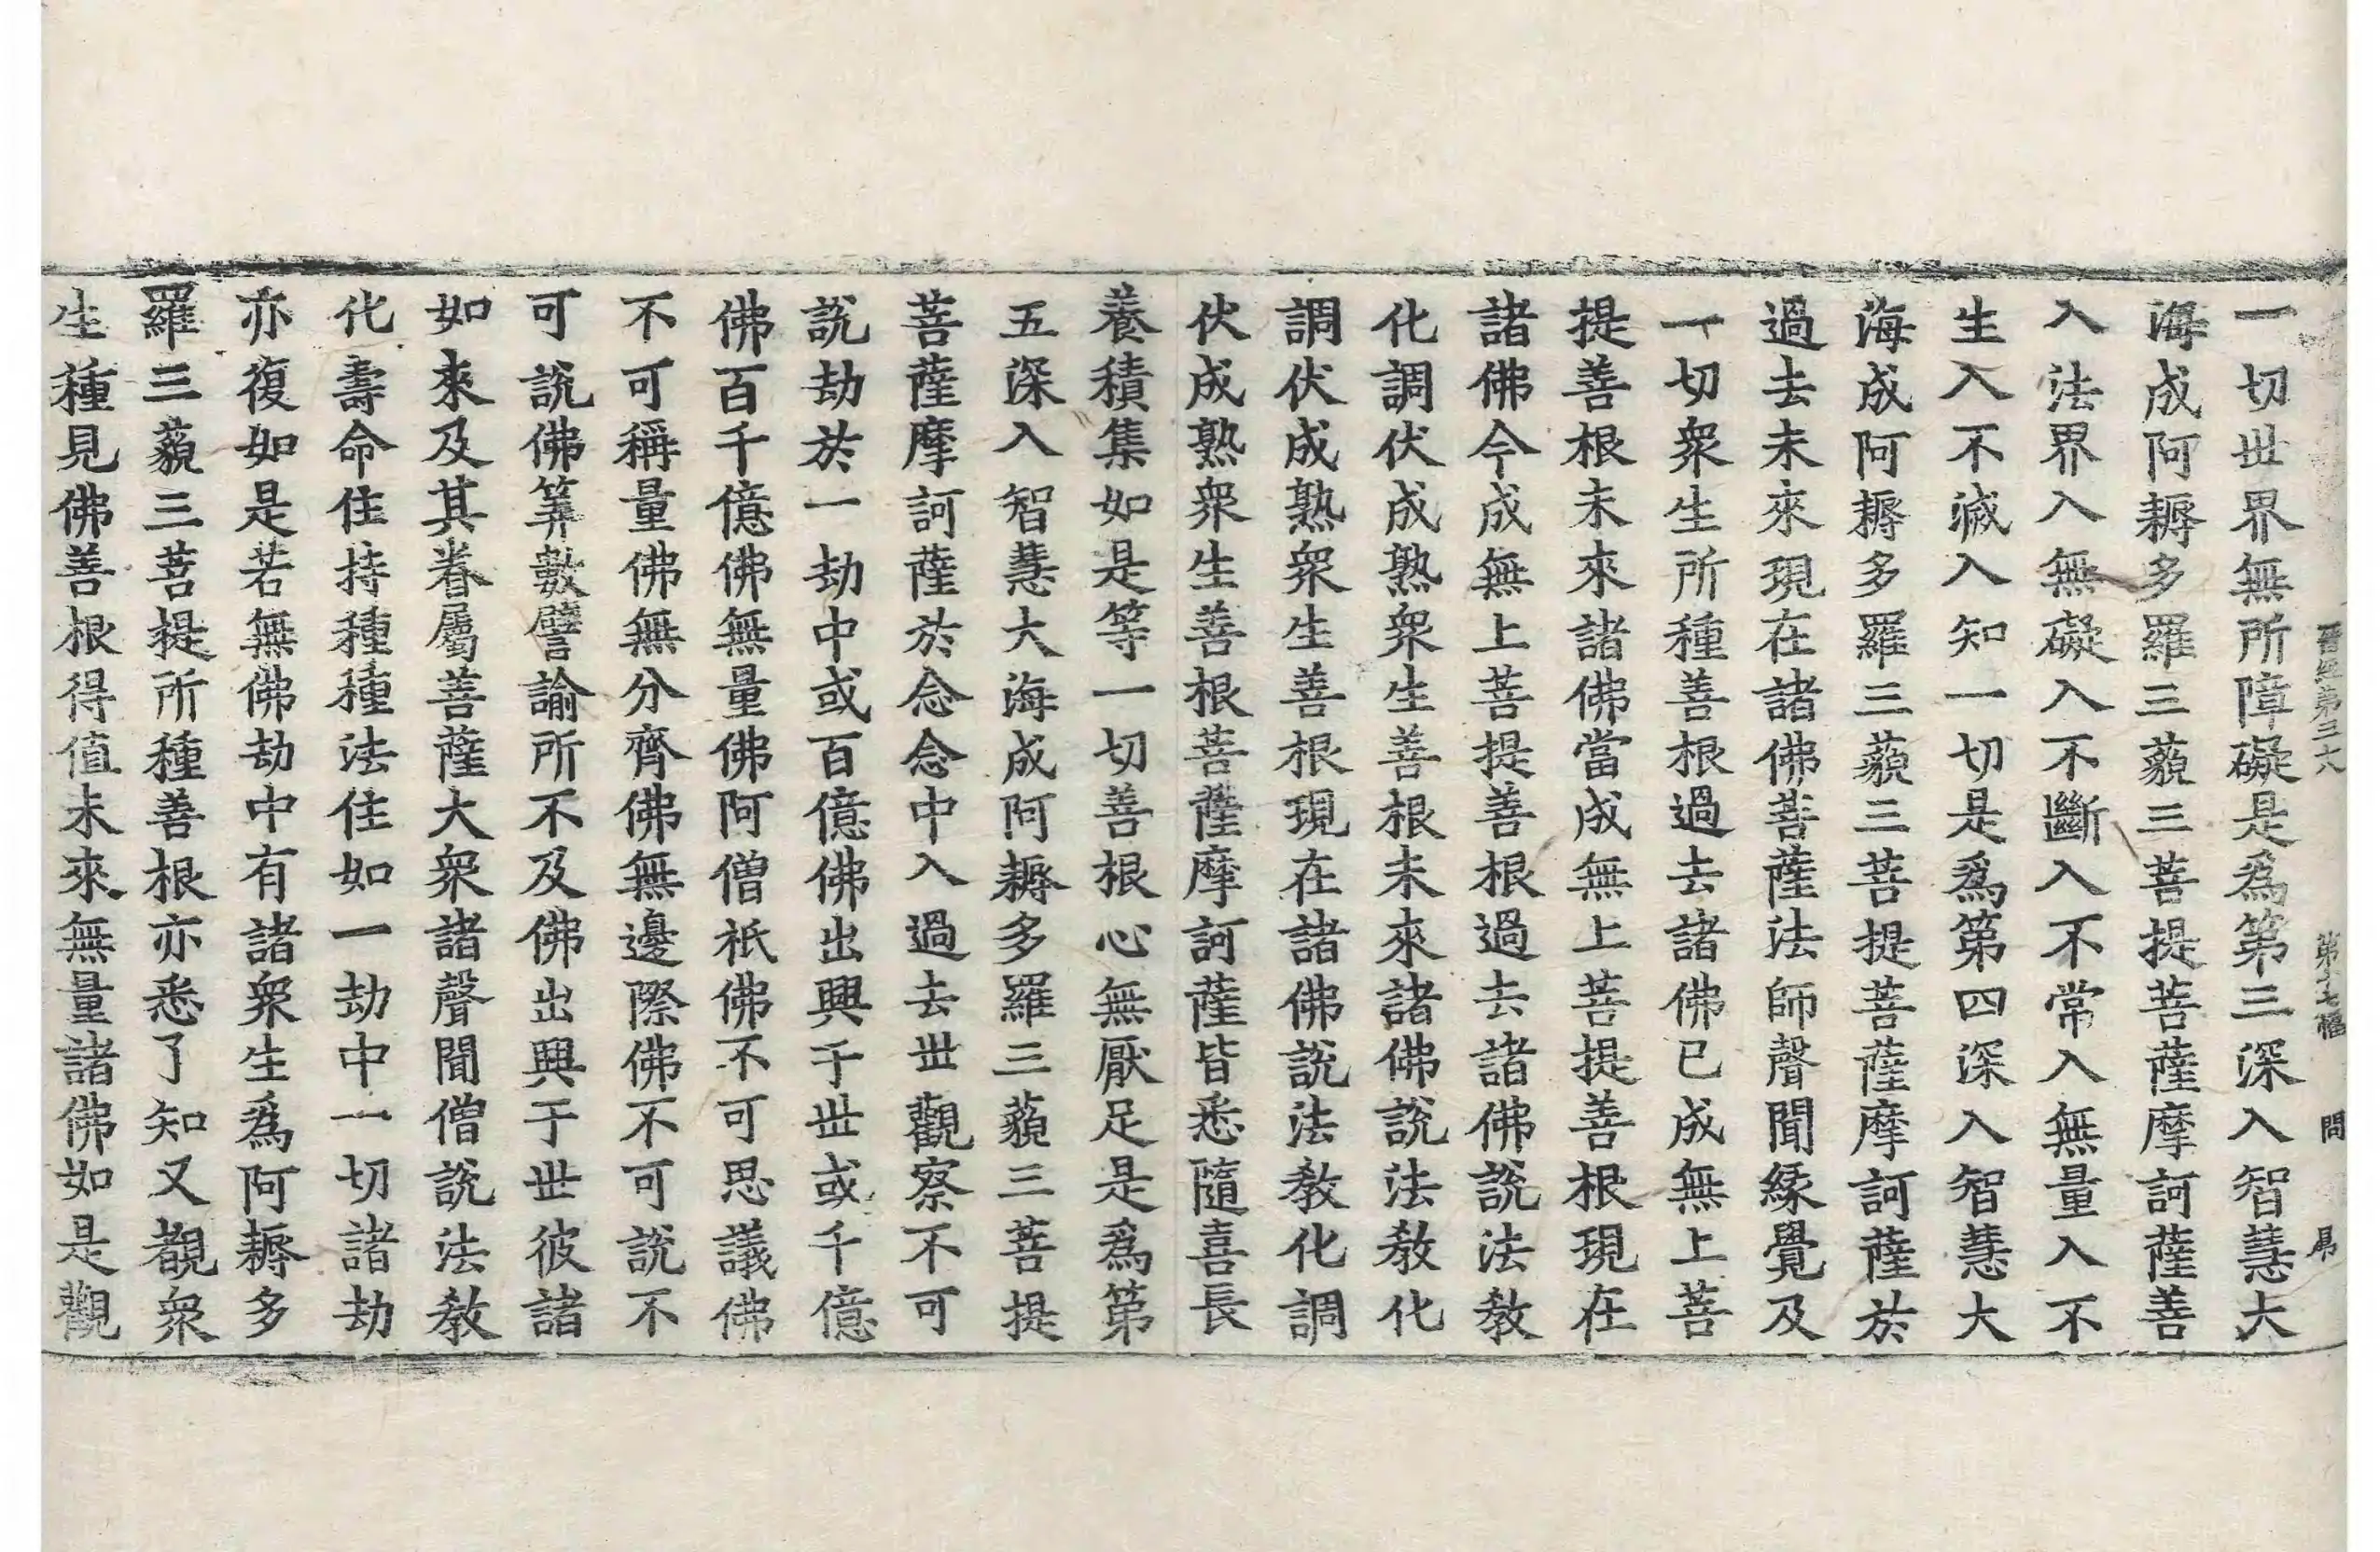 晉經第三六 第十七幅 問 㞐
一切世界無所障礙是爲第三深入智慧大
海成阿耨多羅三藐三菩提菩薩摩訶薩善
入法界入無礙入不斷入不常入無量入不
生入不滅入知一切是爲第四深入智慧大
海成阿耨多羅三藐三菩提菩薩摩訶薩於
過去未來現在諸佛菩薩法師聲聞緣覺及
一切衆生所種善根過去諸佛已成無上菩
提善根未來諸佛當成無上菩提善根現在
諸佛今成無上菩提善根過去諸佛說法敎
化調伏成熟衆生善根未來諸佛說法敎化
調伏成熟衆生善根現在諸佛說法敎化調
伏成熟衆生善根菩薩摩訶薩皆悉隨喜長
養積集如是等一切善根心無厭足是爲第
五深入智慧大海成阿耨多羅三藐三菩提
菩薩摩訶薩於念念中入過去世觀察不可
說劫於一劫中或百億佛出興于世或千億
佛百千億佛無量佛阿僧祇佛不可思議佛
不可稱量佛無分齊佛無邊際佛不可說不
可說佛筭數譬諭所不及佛出興于世彼諸
如來及其眷屬菩薩大衆諸聲聞僧說法敎
化壽命住持種種法住如一劫中一切諸劫
亦復如是若無佛劫中有諸衆生爲阿耨多
羅三藐三菩提所種善根亦悉了知又觀衆
生種見佛善根得值未來無量諸佛如是觀